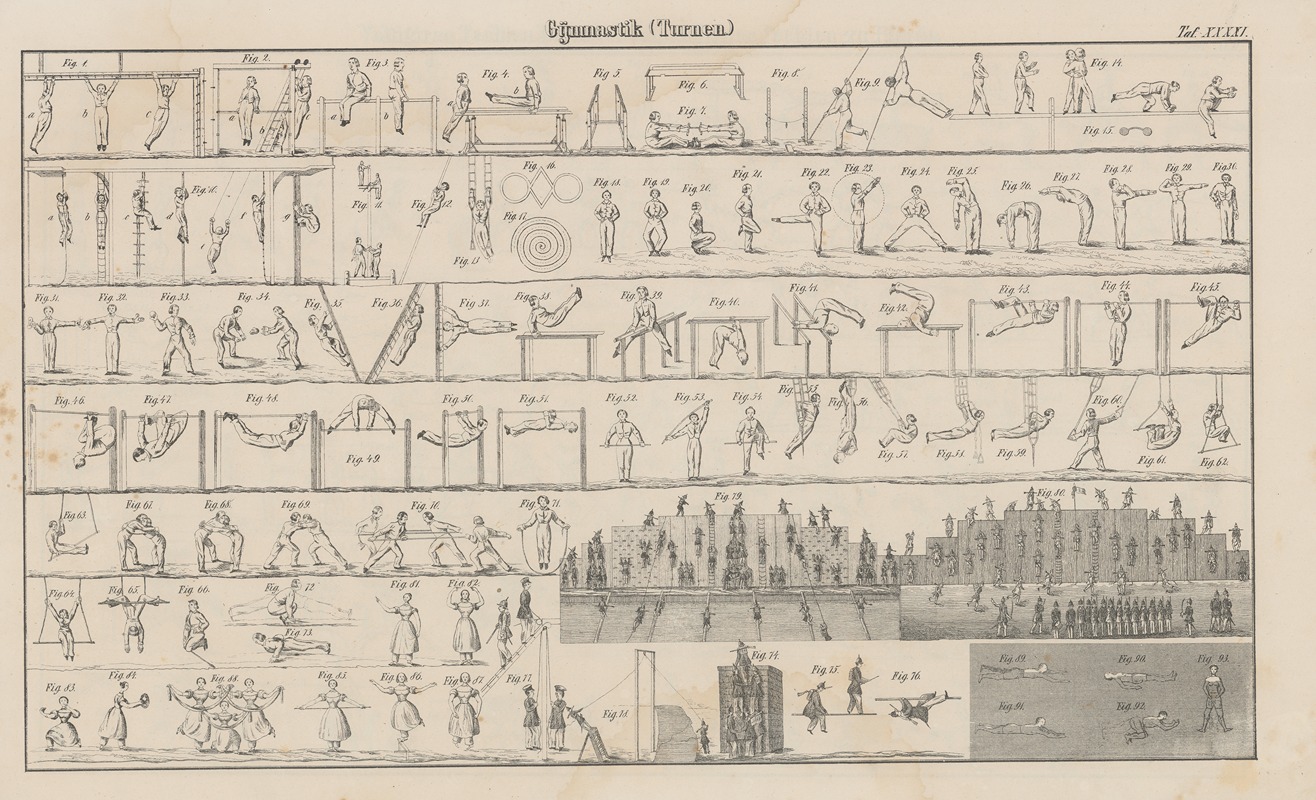 Gÿmnastik (Turnen)
Taf. XXXXI.
Fig. 1. Fig. 2. Fig. 3. Fig. 4. Fig. 5. Fig. 6. Fig. 8. Fig. 9. Fig. 14.
a b c a b c a b a b Fig. 7. Fig. 15.
Fig. 16. Fig. 18. Fig. 19. Fig. 20. Fig. 21. Fig. 22. Fig. 23. Fig. 24. Fig. 25. Fig. 26. Fig. 27. Fig. 28. Fig. 29. Fig. 30.
a b c d e f g Fig. 12. Fig. 17.
Fig. 13
Fig. 31. Fig. 32. Fig. 33. Fig. 34. Fig. 35 Fig. 36. Fig. 37. Fig. 38. Fig. 39. Fig. 40. Fig. 41. Fig. 42. Fig. 43. Fig. 44. Fig. 45.
Fig. 46. Fig. 47. Fig. 48. Fig. 50. Fig. 51. Fig. 52. Fig. 53. Fig. 54. Fig. 55 Fig. 56. Fig. 60.
Fig. 49. Fig. 57. Fig. 58. Fig. 59. Fig. 61. Fig. 62.
Fig. 63. Fig. 67. Fig. 68. Fig. 69. Fig. 70. Fig. 71. Fig. 79. Fig. 80.
Fig. 64. Fig. 65. Fig. 66. Fig. 72 Fig. 81. Fig. 82.
Fig. 73.
Fig. 83. Fig. 84. Fig. 88. Fig. 85. Fig. 86. Fig. 87. Fig. 77. Fig. 78. Fig. 74. Fig. 75. Fig. 76. Fig. 89. Fig. 90. Fig. 93.
Fig. 91. Fig. 92.